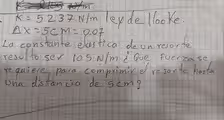 K = 5237 N/m ley de Hooke.
ΔX = 5cm = 0.07
La constante elástica de un resorte
resultó ser 105 N/m ¿Que fuerza se
requiere para comprimir el resorte hasta
una distancia de 5cm?